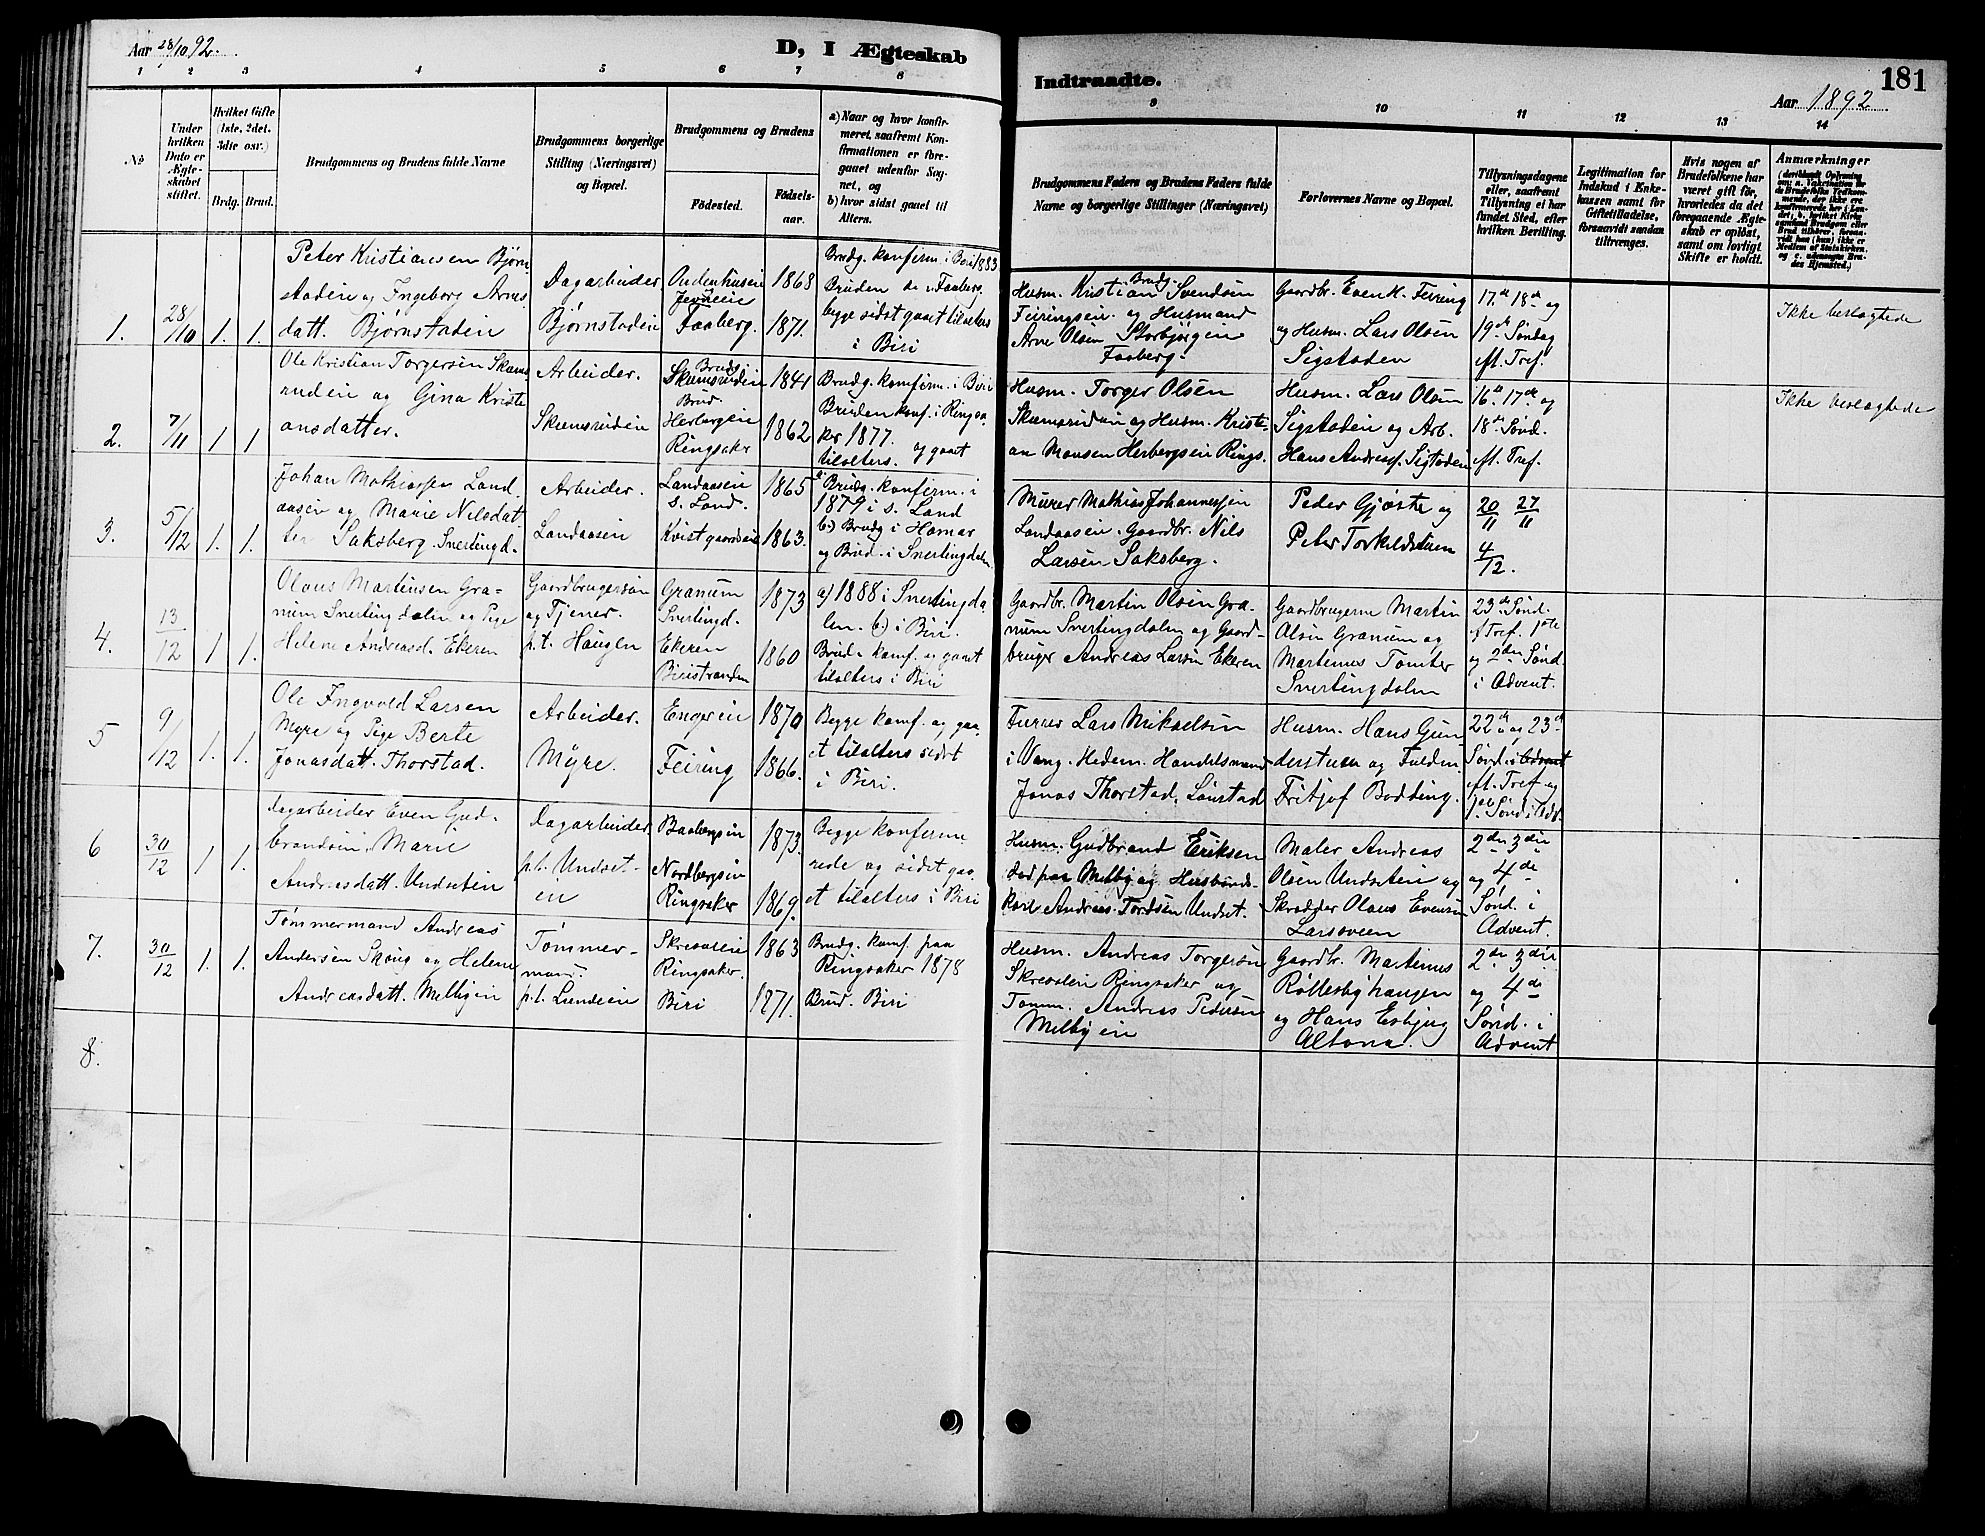 Aar 28/10 92.
D, I Ægteskab
1 2 3 4 5 6 7 8
No
Under hvilken Dato er Ægteskabet stiftet.
Hvilket Gifte (1ste, 2det, 3die osv.)
Brdg. Brud.
Brudgommens og Brudens fulde Navne
Brudgommens borgerlige Stilling (Næringsvei) og Bopæl.
Brudgommens og Brudens
Fødested.
Fødselsaar.
a) Naar og hvor konfirmeret, saafremt Konfirmationen er foregaaet udenfor Sognet, og
b) hvor sidst gaaet til Alters.
1.
28/10
1. 1.
Peter Kristiansen Bjørn
staden og Ingeborg Arns
datt. Bjørnstaden
Dagarbeider
Bjørnstaden
Faaberg.
1868
1871.
Brudg. konfirm. i Biri 1883
Bruden do i Faaberg.
begge sidst gaaet tilalters
i Biri
2.
7/11
1 1
Ole Kristian Torgersen Skums
ruden og Gina Kristi
ansdatter.
Arbeider.
Skumsruden
Brudg.
Skumsruden
Brud.
Herbergsen
Ringsaker
1841
1862
Brudg. konfirm. i Biri
Bruden konf. i Ringsa
ker 1877.
tilalters. og gaaet
3.
5/12
1. 1.
Johan Mathiassen Land
aasen og Marie Nilsdat
ter Saksberg. Snertingd.
Arbeider.
Landaasen
Landaasen
S. Land.
Kvistgaardsei
1865
1863.
a) Brudg. konfirm. i
1879 i S. Land
b) Brudg i Hamar
og Brud. i Snertingdalen
4.
13/12
1 1.
Olaus Martinsen Gra-
num Snertingdalen og Pige
Helene Andreasd. Ekeren
Gaardbrugersøn
og Tjener
p.t. Haugen
Granum
Snertingd.
Ekeren
Biristranden
1873
1860
a) 1888 i Snertingda
len. b) i Biri.
Brud. konf. og gaaet
tilalters i Biri
5
9/12
1. 1.
Ole Ingvold Larsen
Myre og Pige Berte
Jonasdatt. Thorstad.
Arbeider.
Myre.
Engeein
Feiring
1870
1866.
Begge konf. og gaa-
et tilalters sidst
i Biri.
6
30/12
1 1.
Dagarbeider Even Gud-
brandsen, Marie
Andreasdatt. Undseten
Dagarbeider
p.t. Undset-
en
Baabergsen
Nordbergsen
Ringsaker
1873
1869.
Begge konfirme
rede og sidst gaa-
et tilalters i Biri
7.
30/12
1. 1.
Tømmermand Andreas
Andersen Skoug og Helene
Andreasdatt. Melbyen
Tømmer-
mand.
p.t. Lundeien
Skreaseie
Ringsaker.
Biri
1863
1871.
Brudg. konf. paa
Ringsaker 1878
Brud. Biri
8.
Indtraadte.
181
Aar 1892
9 10 11 12 13 14
Brudgommens Faders og Brudens Faders fulde Navne og borgerlige Stillinger (Næringsvei)
Forlovernes Navne og Bopæl.
Tillysningsdagene eller, saafremt Tillysning ei har fundet Sted, efter hvilken Bevilling.
Legitimation for Indskud i Enkekassen samt for Giftetilladelse, forsaavidt saadan tiltrænges.
Hvis nogen af Brudefolkene har været gift før, hvorledes da det foregaaende Ægteskab er opløst, samt om lovligt Skifte er holdt.
Anmærkninger
Brudg.
Husm. Kristian Svendsen
Feiringseie. og Husmand
Arne Olsen Storbjørgen
Faaberg.
Gaardbr. Even K. Feiring
og Husm. Lars Olsen
Sigstaden
17de 18de og
19de Søndag
eft. Tref.
Ikke beslægtede
Husm. Torger Olsen
Skumsruden og Husm. Kristi-
an Monsen Herbergsen Rings.
Husm. Lars Olsen
Sigstaden og Arb.
Hans Andreas. Sigstaden
16de 17de og
18de Sønd.
eft. Tref.
Ikke beslægtede
Murer Mathias Johannessen
Landaasen. Gaardbr. Nils
Larsen Saksberg.
Peder Gjøste og
Peter Torkildstuen
20/11 27/11
4/12.
Gaardbr. Martin Olsen Gra-
num Snertingdalen og Gaard-
bruger Andreas Larsen Ekeren
Gaardbrugerne Martin
Olsen Granum og
Martinus Tomter
Snertingdalen
23de Sønd.
e. Tref. 1ste
og 2den Sønd.
i Advent.
Furer Lars Mikaelsen
i Vang. Hedem. Handelsmand
Jonas Thorstad.
Husm. Hans Gun
derstuen og Fuldm.
Fritjof Bodding.
22de og 23de
Sønd. i Advent
eft. Tref. og
1ste Sønd. i Adv.
Husm. Gudbrand Eriksen
død paa Melby og Husbonds-
karl Andreas Tordsen Undset.
Maler Andreas
Olsen Undseten og
Skrædder Olaus Evensen
Larsveen
2den 3die
og 4de
Sønd. i
Advent.
Husm. Andreas Torgersen
Skreaseien Ringsaker og
Tømm. Andreas Pedersen
Melbyen
Gaardbr. Martinus
Røllesbyhaugen
og Hans Esbjug
Altona.
2den 3die
og 4de
Sønd. i
Advent